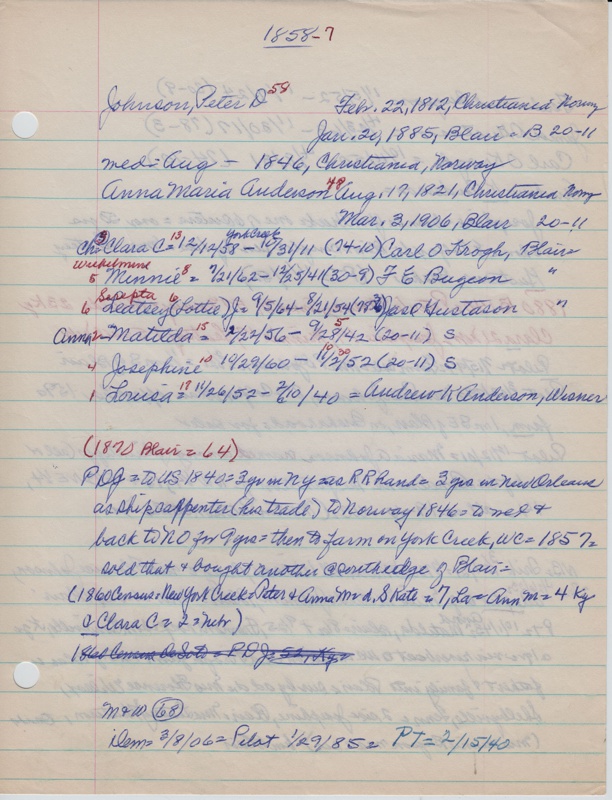 1858-7
Johnson, Peter D 58 Feb. 22, 1812, Christiania Norwy
Jan. 20, 1885, Blair = B 20-11
med = Aug - 1846, Christiania, Norway
Anna Maria Anderson 49 Aug. 17, 1821, Christiania Norwy
Mar. 3, 1906, Blair 20-11
3 Chr. Clara C = 13 12/12/58 York Creek - 10/31/11 (74-10) Carl O Krogh, Blair
Wilhelmine
5 Minnie 8 = 7/21/62 - 12/25/41 (30-9) F E Bugeon "
Serepta
6 Leatsey (Lottie) J = 6 9/5/64 - 8/21/54 Jas O Gustason "
Anna 2 = Matilda = 15 2/22/56 - 9/28/42 (20-11) S
4 Josephine 10 10/29/60 - 11/2/52 (20-11) S
1 Louisa = 17 11/26/52 - 2/10/40 = Andrew K Anderson, Wisner
(1870 Blair = 64)
P DJ = to US 1840 = 3 yrs in NY = as RR hand = 3 yrs in New Orleans
as ships carpenter (his trade) to Norway 1846 = to wed &
back to NO for 9 yrs = then to farm on York Creek, WC = 1857 =
sold that & bought another @ south edge of Blair =
(1860 Census = New York Creek = Peter & Anna M = d. S Kate = 7, La = Ann M = 4 Ky
& Clara C = 2 = Nebr)
1860 Census De Soto = P DJ = 52, Ky =
M & W (68)
Dem = 3/8/06 = Pilot 1/29/85 = PT = 2/15/40